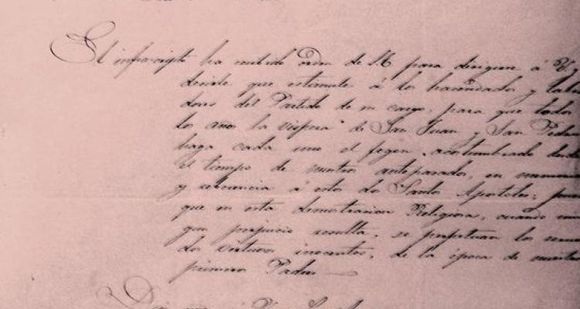 El infrascripto ha recibido orden de S. E. para dirigirse á V.
decirle que estimule á los hacendados y Labra
dores del Partido de su cargo, para que todos
los años la víspera de San Juan y San Pedro
haga cada uno el fogon acostumbrado desde
el tiempo de nuestros antepasados, en memoria
y reverencia á estos dos Santos Apostoles; para
que en esta demostracion Religiosa, cuando
gun perjuicio resulta, se perpetuan los
dos virtuosos inocentes, de la época de nuestros
primeros Padres